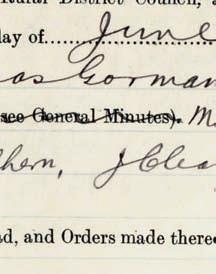 tural District Council,
day of.......June
as Gorman
(see General Minutes). M
hern, J Clea
ad, and Orders made there